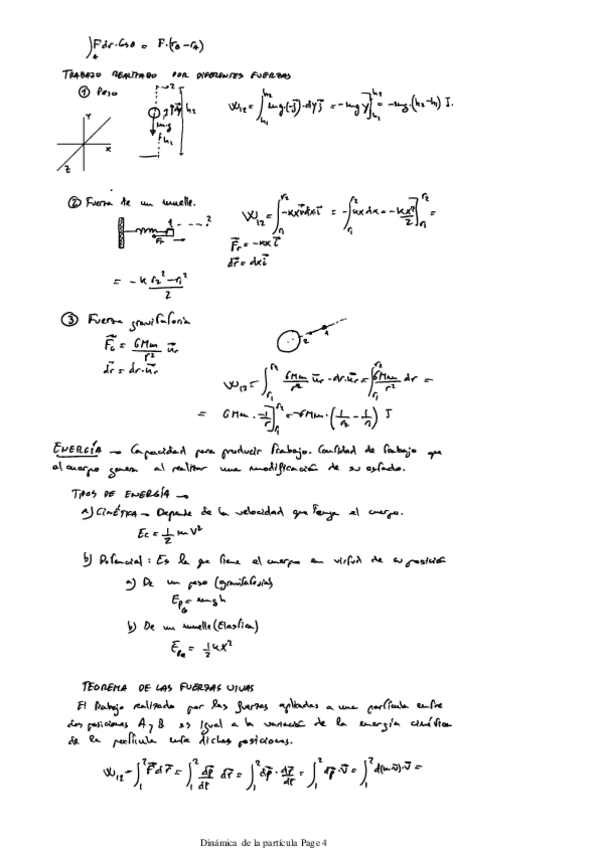 ∫_A F dr · cos0 = F·(r_B − r_A)
TRABAJO REALIZADO POR DIFERENTES FUERZAS
① Peso
Y
x
z
2
h2
mg
h1
W12 = ∫_{h1}^{h2} mg·(−j)·dy j = −mg y]_{h1}^{h2} = −mg·(h2−h1) J.
② Fuerza de un muelle.
1 - - - ?
Fr
W12 = ∫_{r1}^{r2} −kx i dx i = −∫_{r1}^{r2} kx dx = −kx²/2]_{r1}^{r2} =
F_r = −kx i
dr = dx i
= −k (r2² − r1²)/2
③ Fuerza gravitatoria
F_G = GMm/r² u_r
dr = dr·u_r
2 1
W12 = ∫_{r1}^{r2} GMm/r² u_r · dr·u_r = ∫_{r1}^{r2} GMm/r² dr =
= GMm · −1/r]_{r1}^{r2} = −GMm·(1/r2 − 1/r1) J
ENERGÍA → Capacidad para producir trabajo. Cantidad de trabajo que
el cuerpo genera al realizar una modificación de su estado.
TIPOS DE ENERGÍA →
a) CINÉTICA → Depende de la velocidad que tenga el cuerpo.
Ec = 1/2 mv²
b) Potencial: Es la que tiene el cuerpo en virtud de su posición
a) De un peso (gravitatoria)
E_PG = mgh
b) De un muelle (Elastica)
E_Pe = 1/2 kx²
TEOREMA DE LAS FUERZAS VIVAS
El trabajo realizado por las fuerzas aplicadas a una partícula entre
dos posiciones A y B es igual a la variación de la energía cinética
de la partícula entre dichas posiciones.
W12 = ∫_1^2 F dr = ∫_1^2 dp/dt dr = ∫_1^2 dp · dr/dt = ∫_1^2 dp · v = ∫_1^2 d(mv)·v =
Dinámica de la partícula Page 4